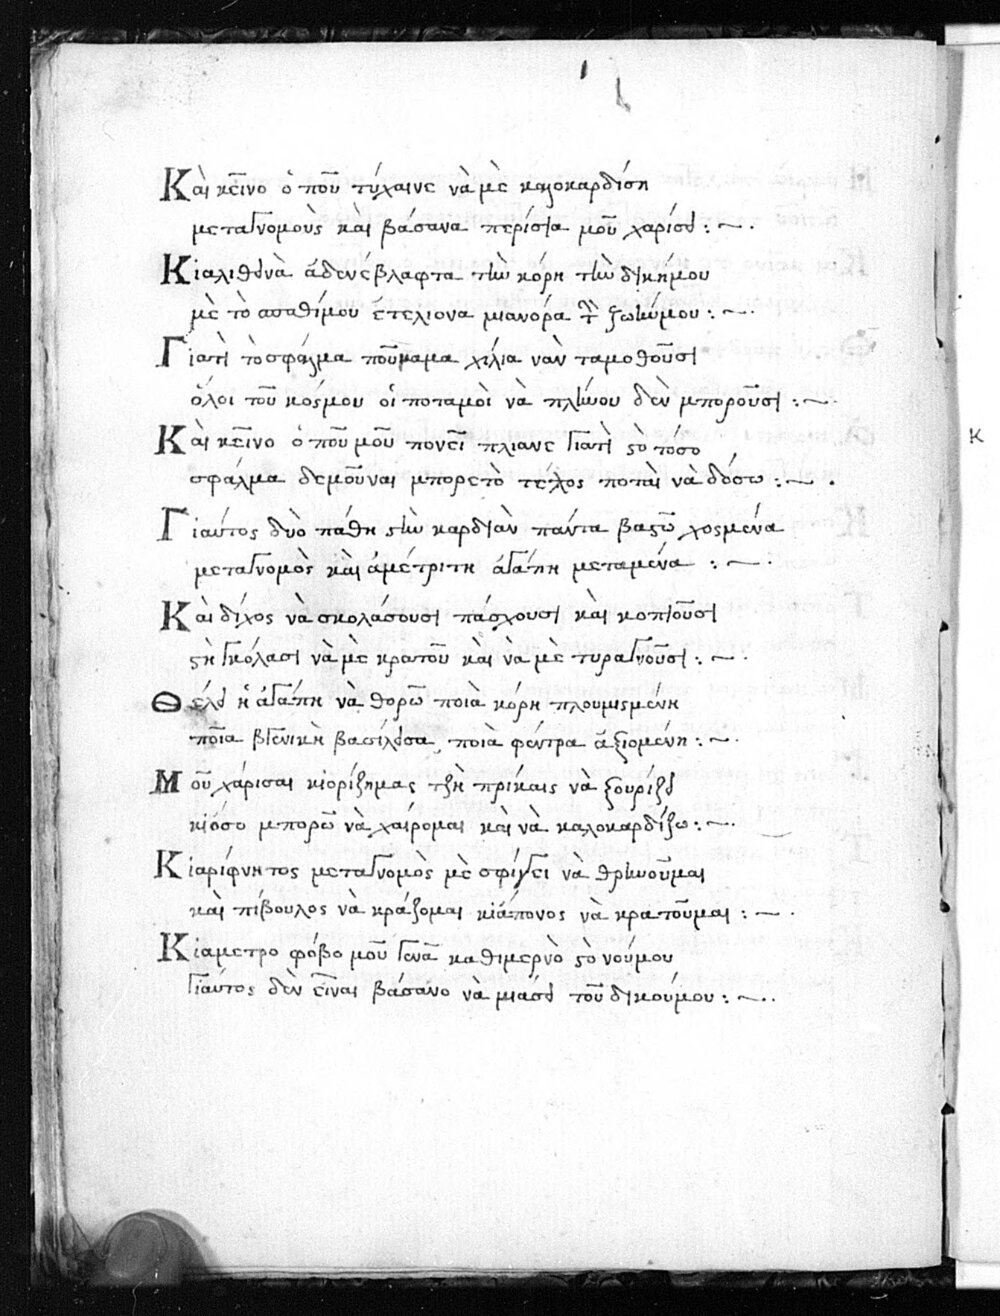 Κὰι κεῖνο ὁ ποῦ τύχαινε νὰ μὲ καλοκαρδίση
μεταγνομοὺς κὰι βάσανα περίσια μοῦ χαρίσει :~.
Κιαληθινὰ ἄδεν έβλαφτα τὴν κόρη τὴν δικημου
μὲ τὸ σπαθίμου ετελιονα μιανόρα τὴν ζωήμου :~.
Γιατὶ τὸ σφάλμα ποῦκαμα χίλια νἂν ταμοθοῦσι
ὅλοι τοῦ κόςμου οἱ ποταμὸι νὰ πλύνου δὲν μποροῦσι :~.
Κὰι κεῖνο ὁ ποῦ μοῦ πονεῖ πλιανε γιατὶ ςὸ τόσο
σφάλμα δεμοῦναι μπορετὸ τέλος ποταὶ νὰ δόσω :~.
Γιαύτος δυὸ πάθη ςὴν καρδιὰν πάντα βαςῶ χοσμένα
μεταγνομὸς κὰι ἀμέτριτη ἀγάπη μεταμένα :~.
Κὰι δίχος νὰ σκολάσουσι πάσχουσι κὰι κοπιοῦσι
ςὴ γκόλασι νὰ μὲ κρατοῦ κὰι νὰ μὲ τυραγνοῦσι :~.
Θέλει ἡ ἀγάπη νὰ θορῶ ποιὰ κόρη πλουμισμένη
ποῖα βγενικὴ βασίλισα ποιὰ φέντρα ἀξιομένη :~.
Μοῦ χάρισαι κιορίζημας τζὴ πρίκαις νὰ ξουρίζει
κιόσο μπορῶ νὰ χαίρομαι κὰι νὰ καλοκαρδίζω :~.
Κιαρίφνητος μεταγνομὸς μὲ σφίγει νὰ θρινοῦμαι
κὰι πίβουλος νὰ κράζομαι κιάπονος νὰ κρατοῦμαι :~.
Κιαμετρο φόβο μοῦ γενᾶ καθιμερνὸ ςὸ νούμου
γιαύτος δὲν εῖναι βάσανο νὰ μιάσει τοῦ δικούμου :~..
Κ